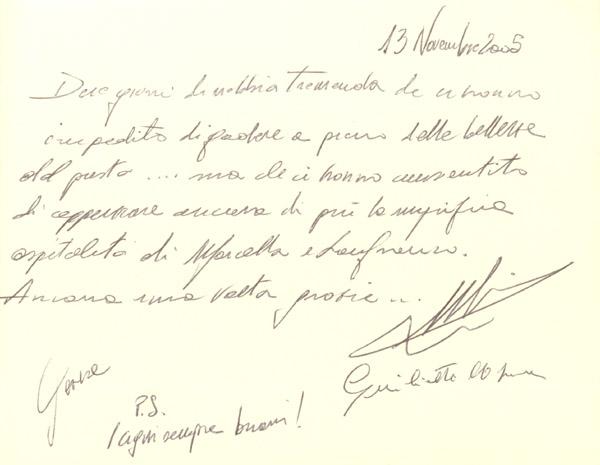 13 Novembre 2005
Due giorni di nebbia tremenda che ci hanno
impedito di godere a pieno delle bellezze
del posto .... ma che ci hanno consentito
di apprezzare ancora di più la magnifica
ospitalità di Marcella e Gianfranco.
Ancora una volta grazie...
Giulietta
P.S.
I cigni sempre buoni!